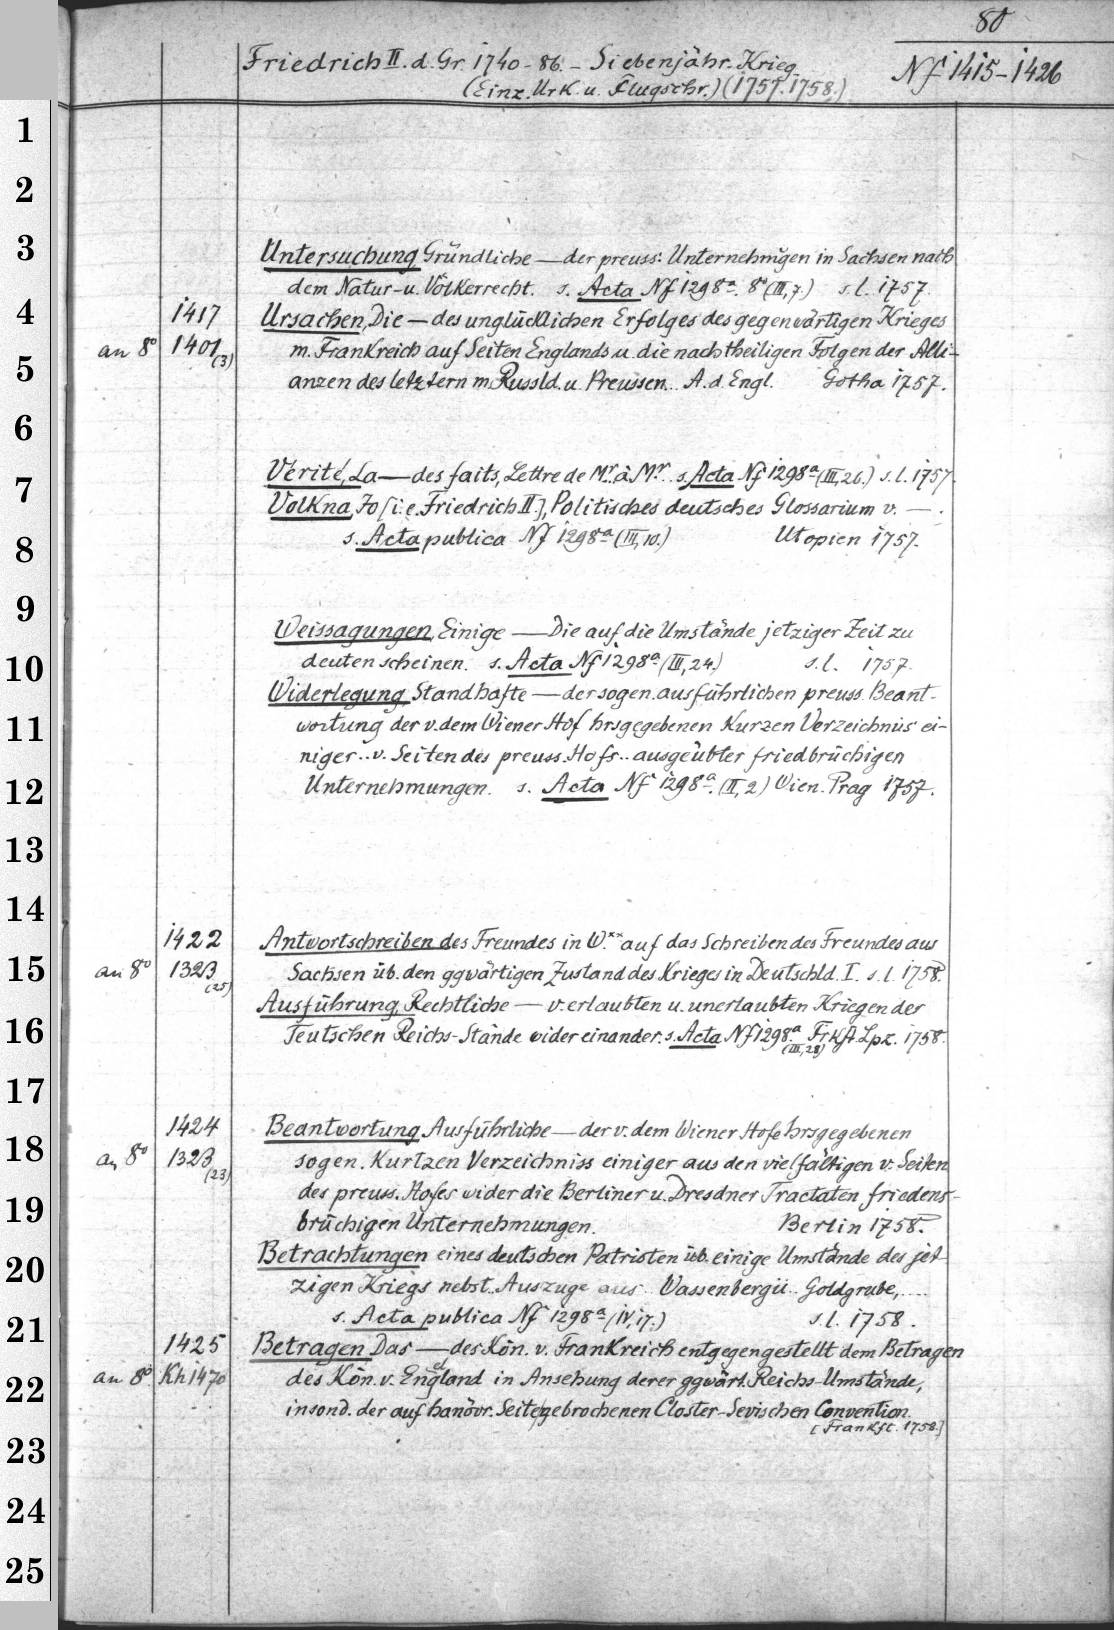 80
Friedrich II. d. Gr. 1740-86. - Siebenjähr. Krieg
Nf 1415-1426
(Einz. Urk. u. Flugschr.) (1757. 1758.)
1
2
3
Untersuchung Gründliche — der preuss: Unternehmūgen in Sachsen nach
dem Natur- u. Völkerrecht. s. Acta Nf 1298a. 8° (III,7.) s.l. 1757.
4
1417 Ursachen, Die — des unglücklichen Erfolges des gegenwärtigen Krieges
an 8° 1401(3) m. Frankreich auf Seiten Englands u. die nachtheiligen Folgen der Alli-
5
anzen des letztern m. Russld. u. Preussen.. A. d. Engl. Gotha 1757.
6
Verité, La — des faits, Lettre de Mr. à Mr.. s. Acta Nf 1298a (III,26.) s.l. 1757.
7
Volkna, Jo [i.e. Friedrich II.], Politisches deutsches Glossarium v. — .
s. Acta publica Nf 1298a (III,10.) Utopien 1757.
8
9
Weissagungen, Einige — Die auf die Umstände jetziger Zeit zu
deuten scheinen. s. Acta Nf 1298a (III,24.) s.l. 1757.
10
Widerlegung, Standhafte — der sogen. ausführlichen preuss. Beant-
wortung der v. dem Wiener Hof hrsgegebenen Kurzen Verzeichnus ei-
11
niger .. v. Seiten des preuss. Hofs .. ausgeübter friedbrüchigen
Unternehmungen. s. Acta Nf 1298a. (II,2) Wien. Prag 1757.
12
13
14
1422 Antwortschreiben des Freundes in W.** auf das Schreiben des Freundes aus
15
an 8° 1323(25) Sachsen üb. den ggwärtigen Zustand des Krieges in Deutschld. I. s.l. 1758.
Ausführung, Rechtliche — v. erlaubten u. unerlaubten Kriegen der
16
Teutschen Reichs-Stände wider einander. s. Acta Nf 1298.a (III,28) Frkft. Lpz. 1758.
17
1424 Beantwortung, Ausführliche — der v. dem Wiener Hofe hrsgegebenen
18
an 8° 1323(23) sogen. Kurtzen Verzeichniss einiger aus den vielfältigen v. Seiten
des preuss. Hofes wider die Berliner u. Dresdner Tractaten friedens-
19
brüchigen Unternehmungen. Berlin 1758.
Betrachtungen eines deutschen Patrioten üb. einige Umstände des jet-
20
zigen Kriegs nebst.. Auszuge aus .. Wassenbergii.. Goldgrube, ....
s. Acta publica Nf 1298a (IV,17.) s.l. 1758.
21
1425 Betragen, Das — des Kön. v. Frankreich entgegengestellt dem Betragen
an 8° Kh 1470 des Kön. v. England in Ansehung derer ggwärt. Reichs-Umstände,
22
insond. der auf hanövr. Seite gebrochenen Closter-Sevischen Convention.
[Frankft. 1758.]
23
24
25